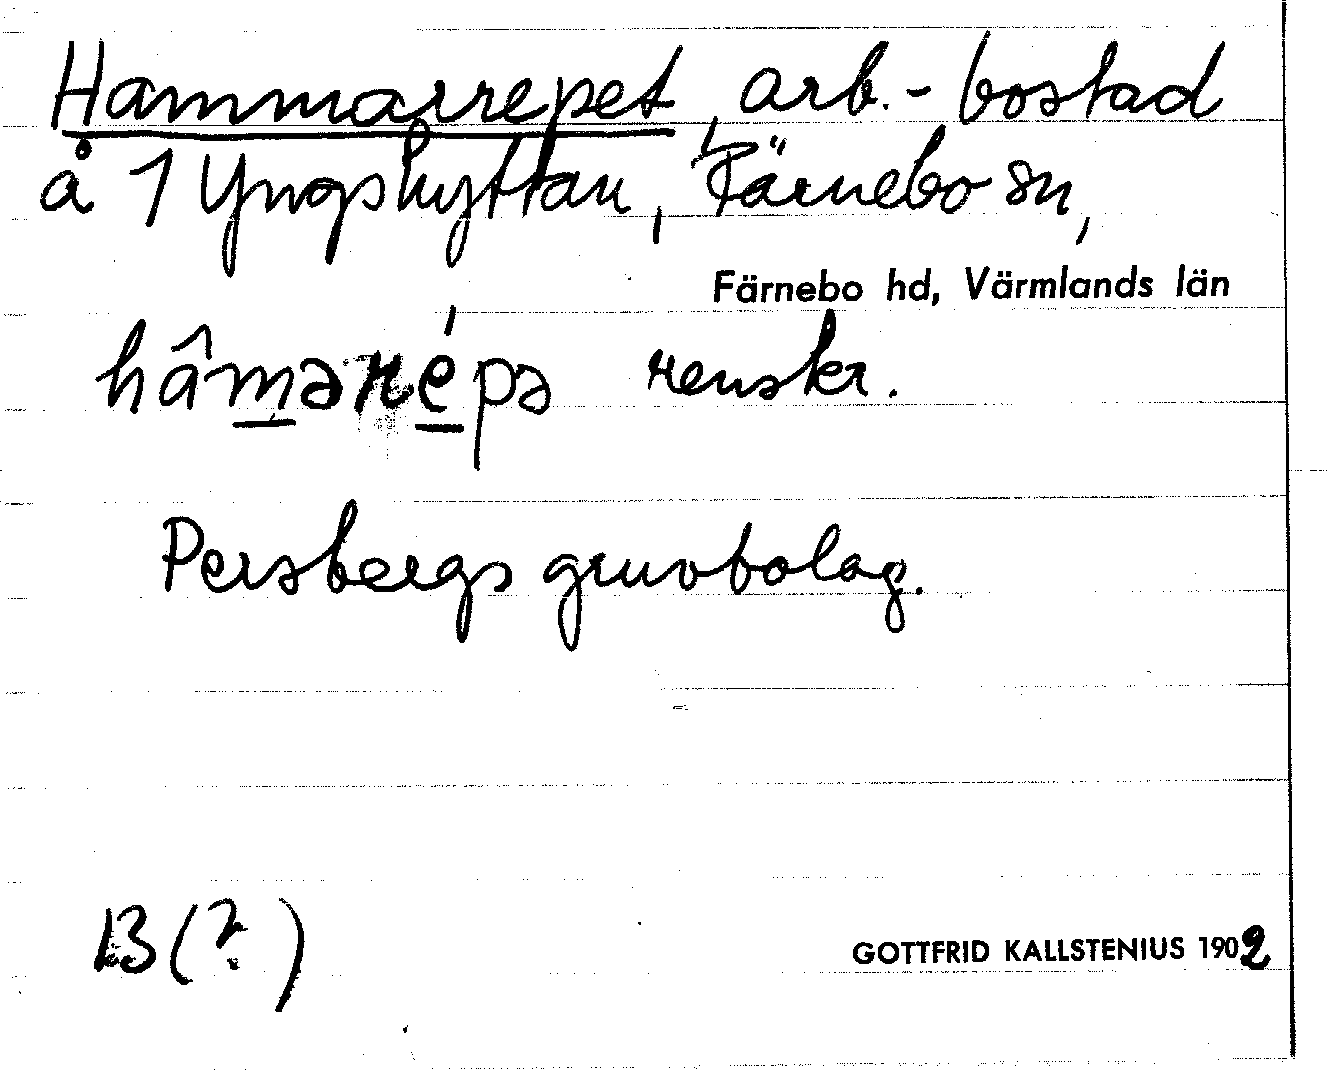 Hammarrepet, arb.-bostad
å 1 Yngshyttan, Färnebo sn,
Färnebo hd, Värmlands län
hâmaRépə renskr.
Persbergs gruvbolag.
B (?)
GOTTFRID KALLSTENIUS 1902